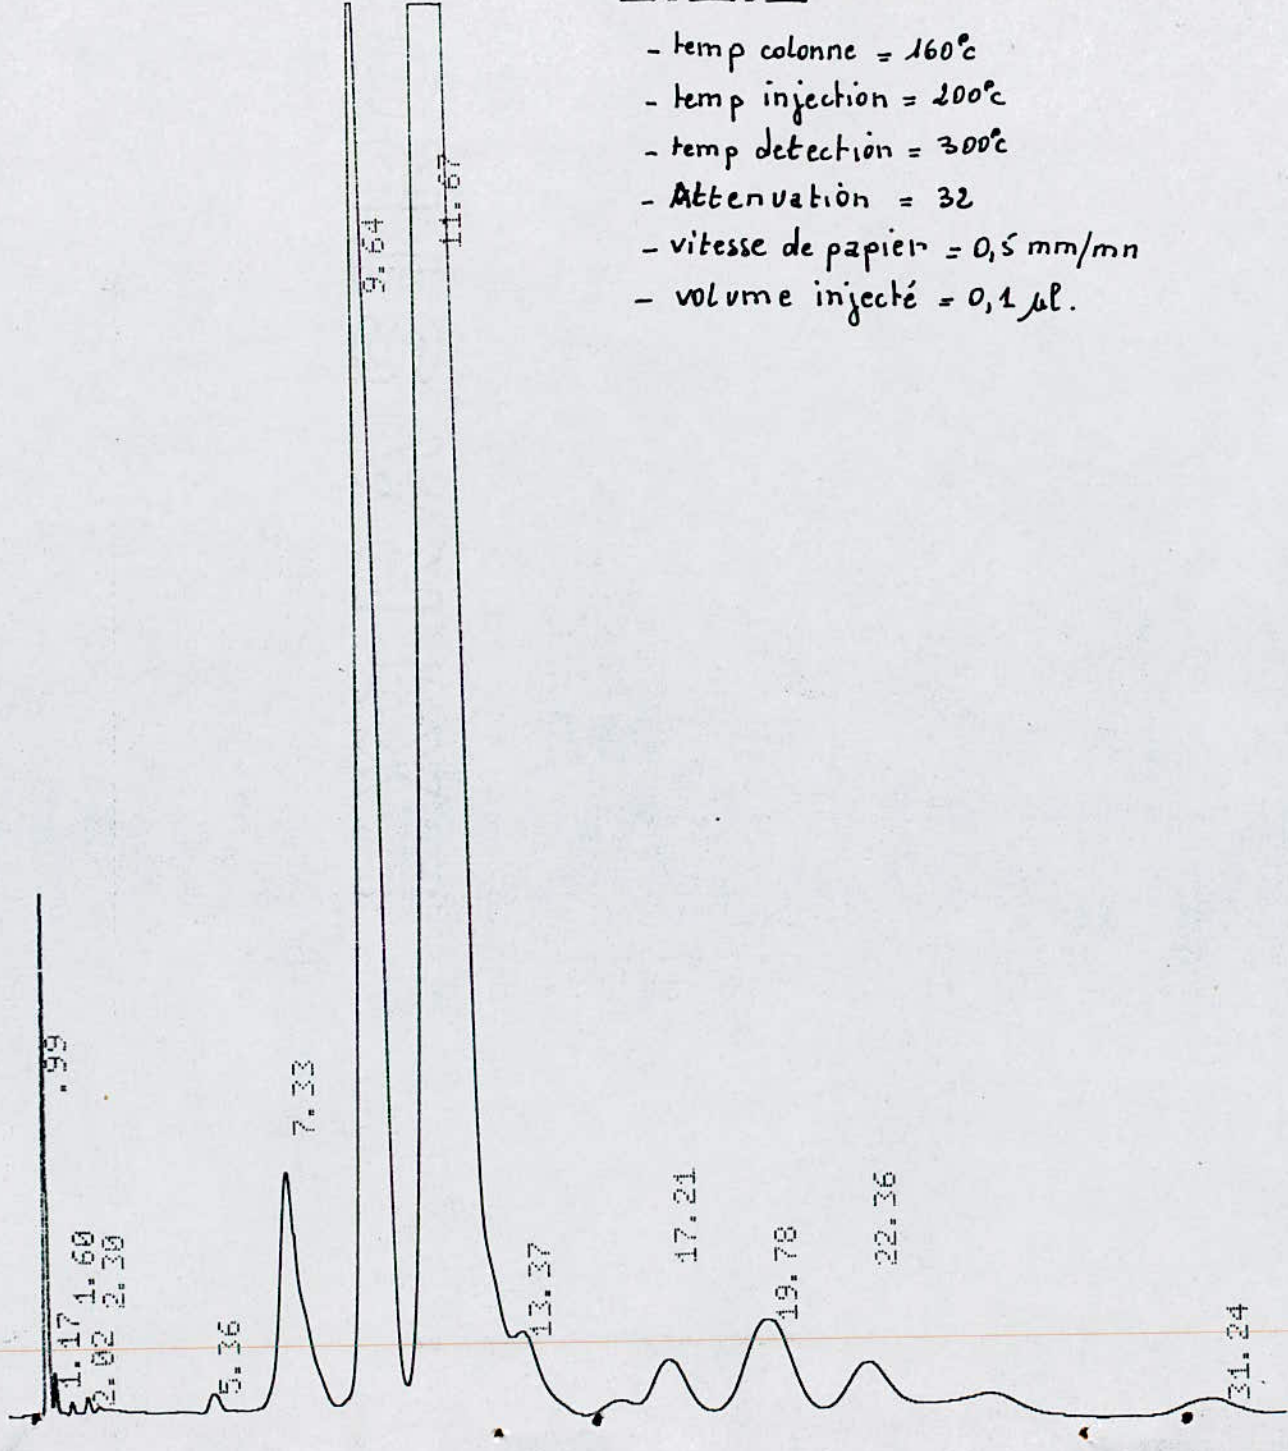 - temp colonne = 160°c
- temp injection = 200°c
- temp detection = 300°c
- Attenuation = 32
- vitesse de papier = 0,5 mm/mn
- volume injecté = 0,1 µl.
11.67
9.64
.99
7.33
1.17
1.60
2.02
2.30
5.36
13.37
17.21
19.78
22.36
31.24